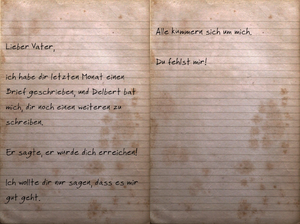 Lieber Vater,
ich habe dir letzten Monat einen
Brief geschrieben, und Delbert bat
mich, dir noch einen weiteren zu
schreiben.
Er sagte, er würde dich erreichen!
Ich wollte dir nur sagen, dass es mir
gut geht.
Alle kümmern sich um mich.
Du fehlst mir!